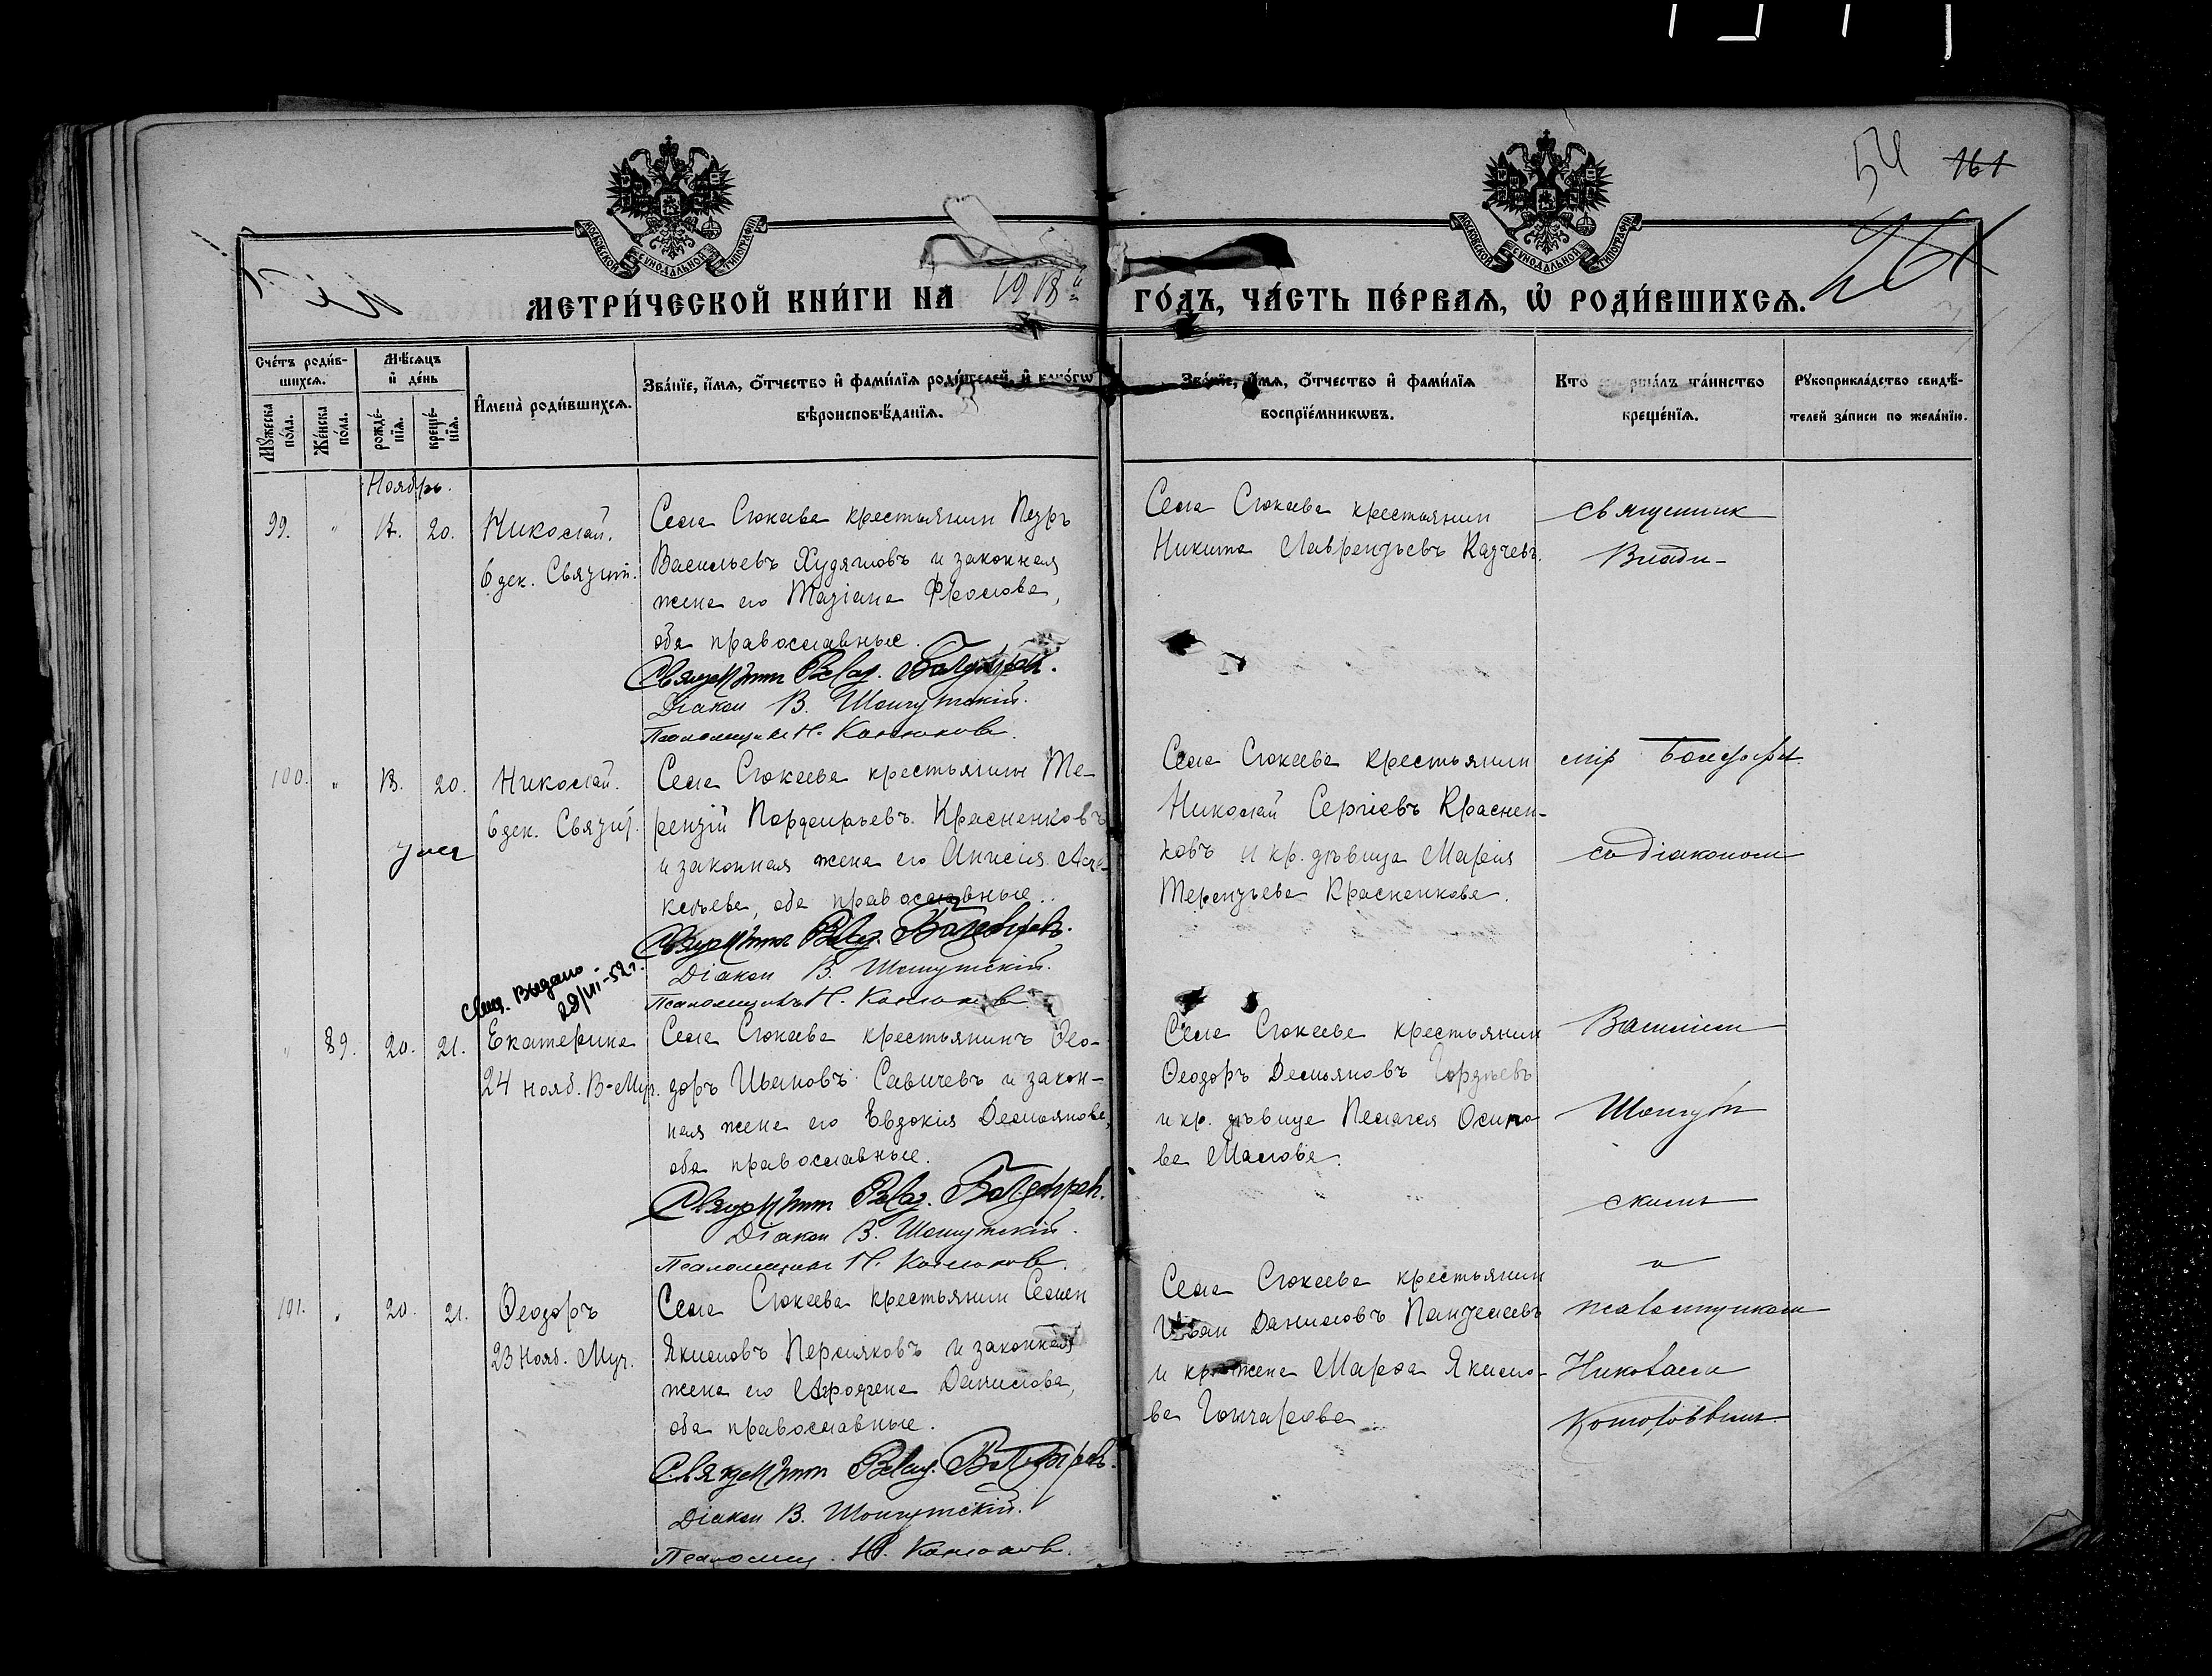 54 161
261
МОСКОВСКОЙ СѴНОДАЛЬНОЙ ТИПОГРАФІИ
МОСКОВСКОЙ СѴНОДАЛЬНОЙ ТИПОГРАФІИ
МЕТРИ́ЧЕСКОЙ КНИ́ГИ НА 1918й ГО́ДЪ, ЧА́СТЬ ПЕ́РВАЯ, Ѡ РОДИ́ВШИХСЯ.
Сче́тъ роди́в-
шихся.
Мꙋ́жеска по́ла.
Же́нска по́ла.
Мѣ́сяцъ
и де́нь
рожде́-
нїя.
креще́-
нїя.
Имена̀ роди́вшихся.
Зва́нїе, и́мя, о́тчество и фами́лїя роди́телей, и како́гѡ
вѣроисповѣ́данїя.
Зва́нїе, и́мя, о́тчество и фами́лїя
воспрїе́мникѡвъ.
Кто̀ соверша́лъ та́инство
креще́нїя.
Рꙋкоприкла́дство свидѣ́-
телей за́писи по жела́нїю.
Ноябрь.
99. " 20. Николай.
6 дек. Святит.
Села Сюкеева крестьянин Петръ
Васильевъ Худяковъ и законная
жена его Татіана Фролова,
оба православные.
Священник Влад.
Діакон В.
Псаломщикъ Н.
Села Сюкеева крестьянин
Никита Лаврентьевъ
священник
Влади-
100. " 20. Николай.
6 дек. Святит.
умер
Села Сюкеева крестьянинъ Те-
рентій Порфирьевъ Красненковъ
и законная жена его Анисія
оба православные.
Священник Влад.
Діакон В.
Псаломщикъ Н.
Села Сюкеева крестьянин
Николай Сергіевъ Краснен-
ковъ и кр. дѣвица Марія
Терентьева Красненкова.
мір
со діаконом
Свид. выдано
28/VII-52 г.
" 89. 20. 21. Екатерина
24 нояб. В-Муч.
Села Сюкеева крестьянинъ Ѳео-
доръ Ивановъ Савичевъ и закон-
ная жена его Евдокія Демьянова,
оба православные.
Священник Влад.
Діакон В.
Псаломщикъ Н.
Села Сюкеева крестьянин
Ѳеодоръ Демьяновъ Гордѣевъ
и кр. дѣвица Пелагея Осипо-
ва Маслова.
Василіем
ским
и
101. " 20. 21. Ѳеодоръ
23 нояб. Муч.
Села Сюкеева крестьянин Семен
Якимовъ Пермяковъ и законная
жена его Агрофена Данилова,
оба православные.
Священник Влад.
Діакон В.
Псаломщ. Н.
Села Сюкеева крестьянин
Иван Даниловъ Пантелеевъ
и кр. жена Марѳа Якимо-
ва Гончарова
псаломщиком
Николаем